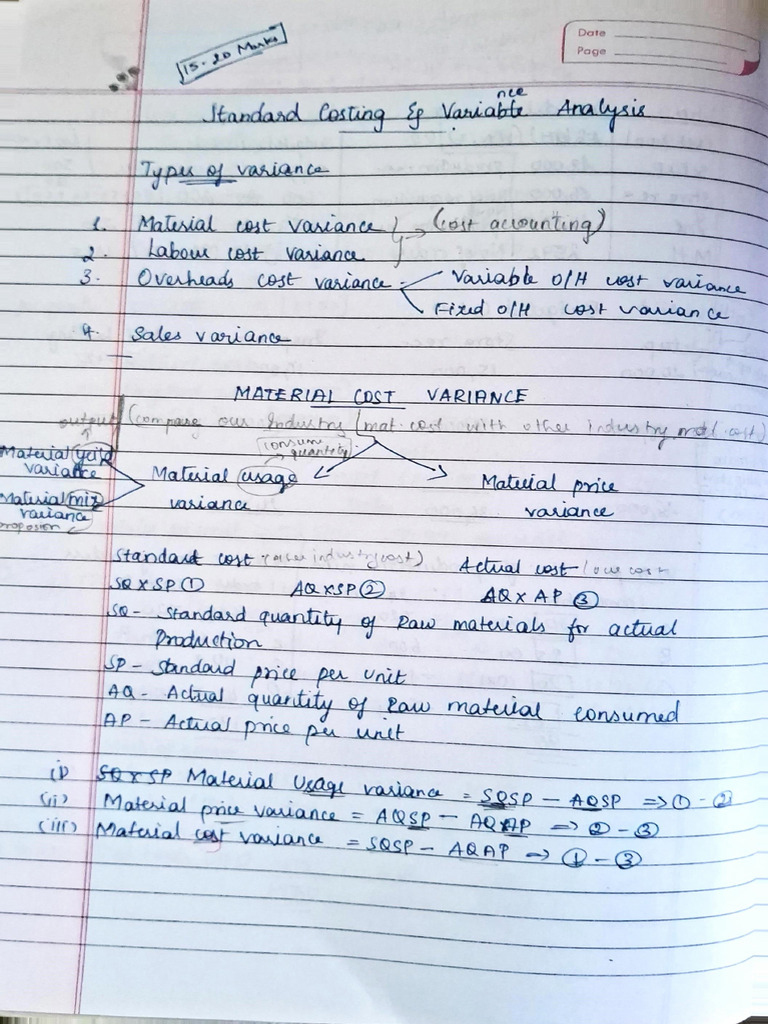 15-20 Marks
Date
Page
Standard Costing & Variable nce Analysis
Types of variance
1. Material cost variance } → (cost accounting)
2. Labour cost variance
3. Overheads cost variance Variable O/H cost variance
Fixed O/H cost variance
4. Sales variance
MATERIAL COST VARIANCE
output (compare our Industry (mat. cost with other industry mat. cost)
consum quantity
Material yeild variance
Material usage variance
Material price variance
Material mix variance
proposion
Standard cost (industry cost) Actual cost (our cost
SQ x SP ① AQ x SP ② AQ x AP ③
SQ - Standard quantity of raw materials for actual
Production
SP - Standard price per unit
AQ - Actual quantity of raw material consumed
AP - Actual price per unit
i) SQ x SP Material Usage variance = SQSP - AQSP ⇒ ① - ②
(ii) Material price variance = AQSP - AQAP ⇒ ② - ③
(iii) Material cost variance = SQSP - AQAP ⇒ ① - ③